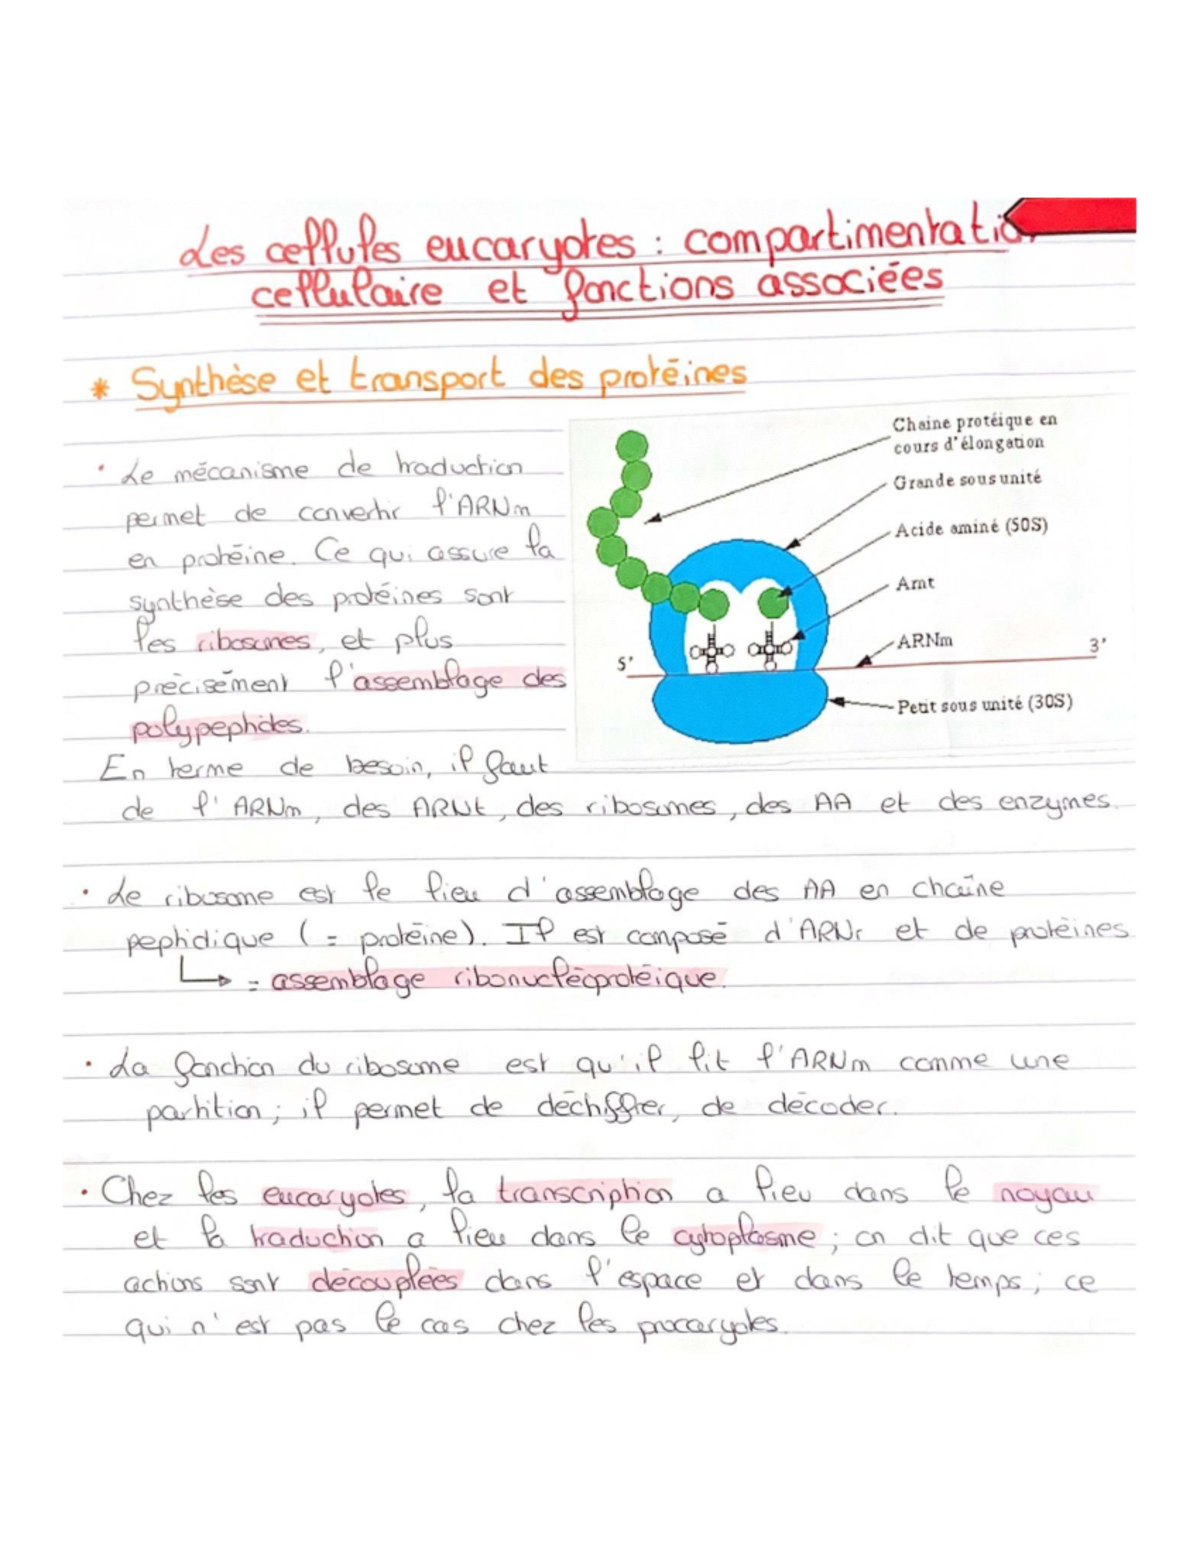 Les cellules eucaryotes : compartimentatio
cellulaire et fonctions associées
* Synthèse et transport des protéines
• Le mécanisme de traduction
permet de convertir l'ARNm
en protéine. Ce qui assure la
synthèse des protéines sont
les ribosomes, et plus
précisément l'assemblage des
polypeptides.
En terme de besoin, il faut
de l'ARNm, des ARNt, des ribosomes, des AA et des enzymes.
Chaine protéique en
cours d'élongation
Grande sous unité
Acide aminé (50S)
Arnt
ARNm
5'
3'
Petit sous unité (30S)
• Le ribosome est le lieu d'assemblage des AA en chaîne
peptidique (= protéine). Il est composé d'ARNr et de protéines
↳ = assemblage ribonucléoprotéique.
• La fonction du ribosome est qu'il lit l'ARNm comme une
partition ; il permet de déchiffrer, de décoder.
• Chez les eucaryotes, la transcription a lieu dans le noyau
et la traduction a lieu dans le cytoplasme ; on dit que ces
actions sont découplées dans l'espace et dans le temps ; ce
qui n'est pas le cas chez les procaryotes.